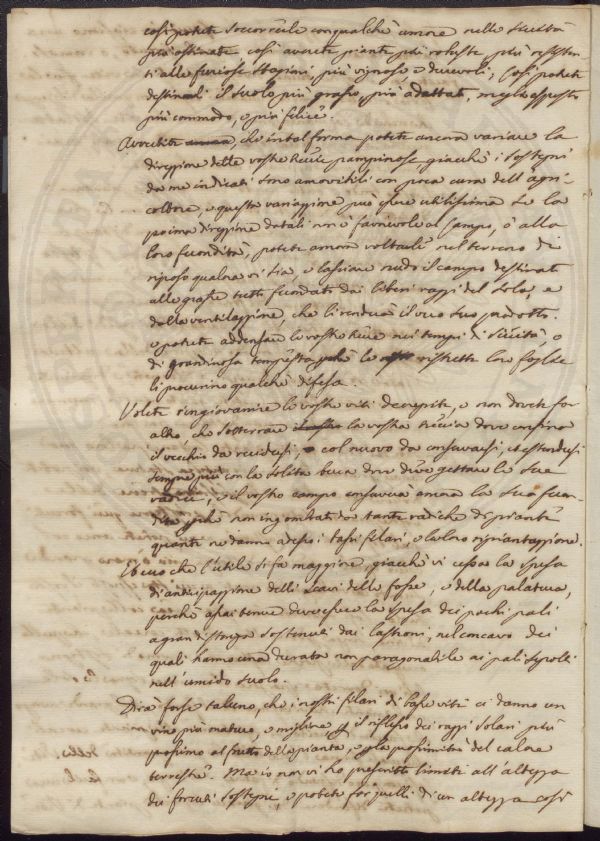 così potete soccorrerle con qualche umore nelle siccità
più ostinate così avrete piante più robuste più resisten-
ti alle furiose stagioni più vignose e durevoli, così potete
destinarli il suolo più grasso, più adattato, meglio esposto
più commodo, e più felice.
Avvertite, che in tal forma potete ancora variare la
direzzione delle vostre pampinose, giacchè i sostegni
da me indicati sono amovibili con poca cura dell'agri-
coltore, e questa variazzione può essere utilissima se la
prima direzzione datali non è favorevole al campo, ò alla
loro fecondità, potete ancora voltarle nel terreno di
riposo qualora vi sia, e lasciare nudo il campo destinato
alle graste tutti fecondato dai liberi raggi del sole, e
dalla ventilazzione, che li renderà il vero suo prodotto.
o potete addensare le vostre nei tempi di siccità, o
di grandinosa tempesta perchè le ristrette loro foglie
li procurino qualche difesa.
Volete ringiovanire le vostre viti decrepite, e non dovete far
altro, che sotterrare la vostra treccia dove confina
il vecchio da recidersi, col nuovo da conservarsi, ed estendersi
sempre più con la solita buca dove deve gettare le sue
radici, e il vostro campo conserverà ancora la sua fecon-
dità perchè non ingombrato da tante radiche di piante
quante ne danno adesso i tassi filari, e la loro ripiantazzione.
Ed ecco che l'utile si fa maggiore, giacchè vi cessa la spesa
d'anticipazzione delli scavi delle fosse, e della palatura,
perchè assai tenue deve essere la spesa dei pochi pali
a grandi stanza sostenuti dai lastroni, nel concavo dei
quali hanno una durata non paragonabile ai pali sepolti
nell'umido suolo.
Dirà forse taluno, che i nostri filari di basse viti ci danno un
vino più maturo, e migliore il riflesso dei raggi solari più
prossimo al frutto della pianta, e la prossimità del calore
terrestre. Ma io non vi ho prescritto limiti all'altezza
dei forcuti sostegni, e potete far quelli di un altezza così